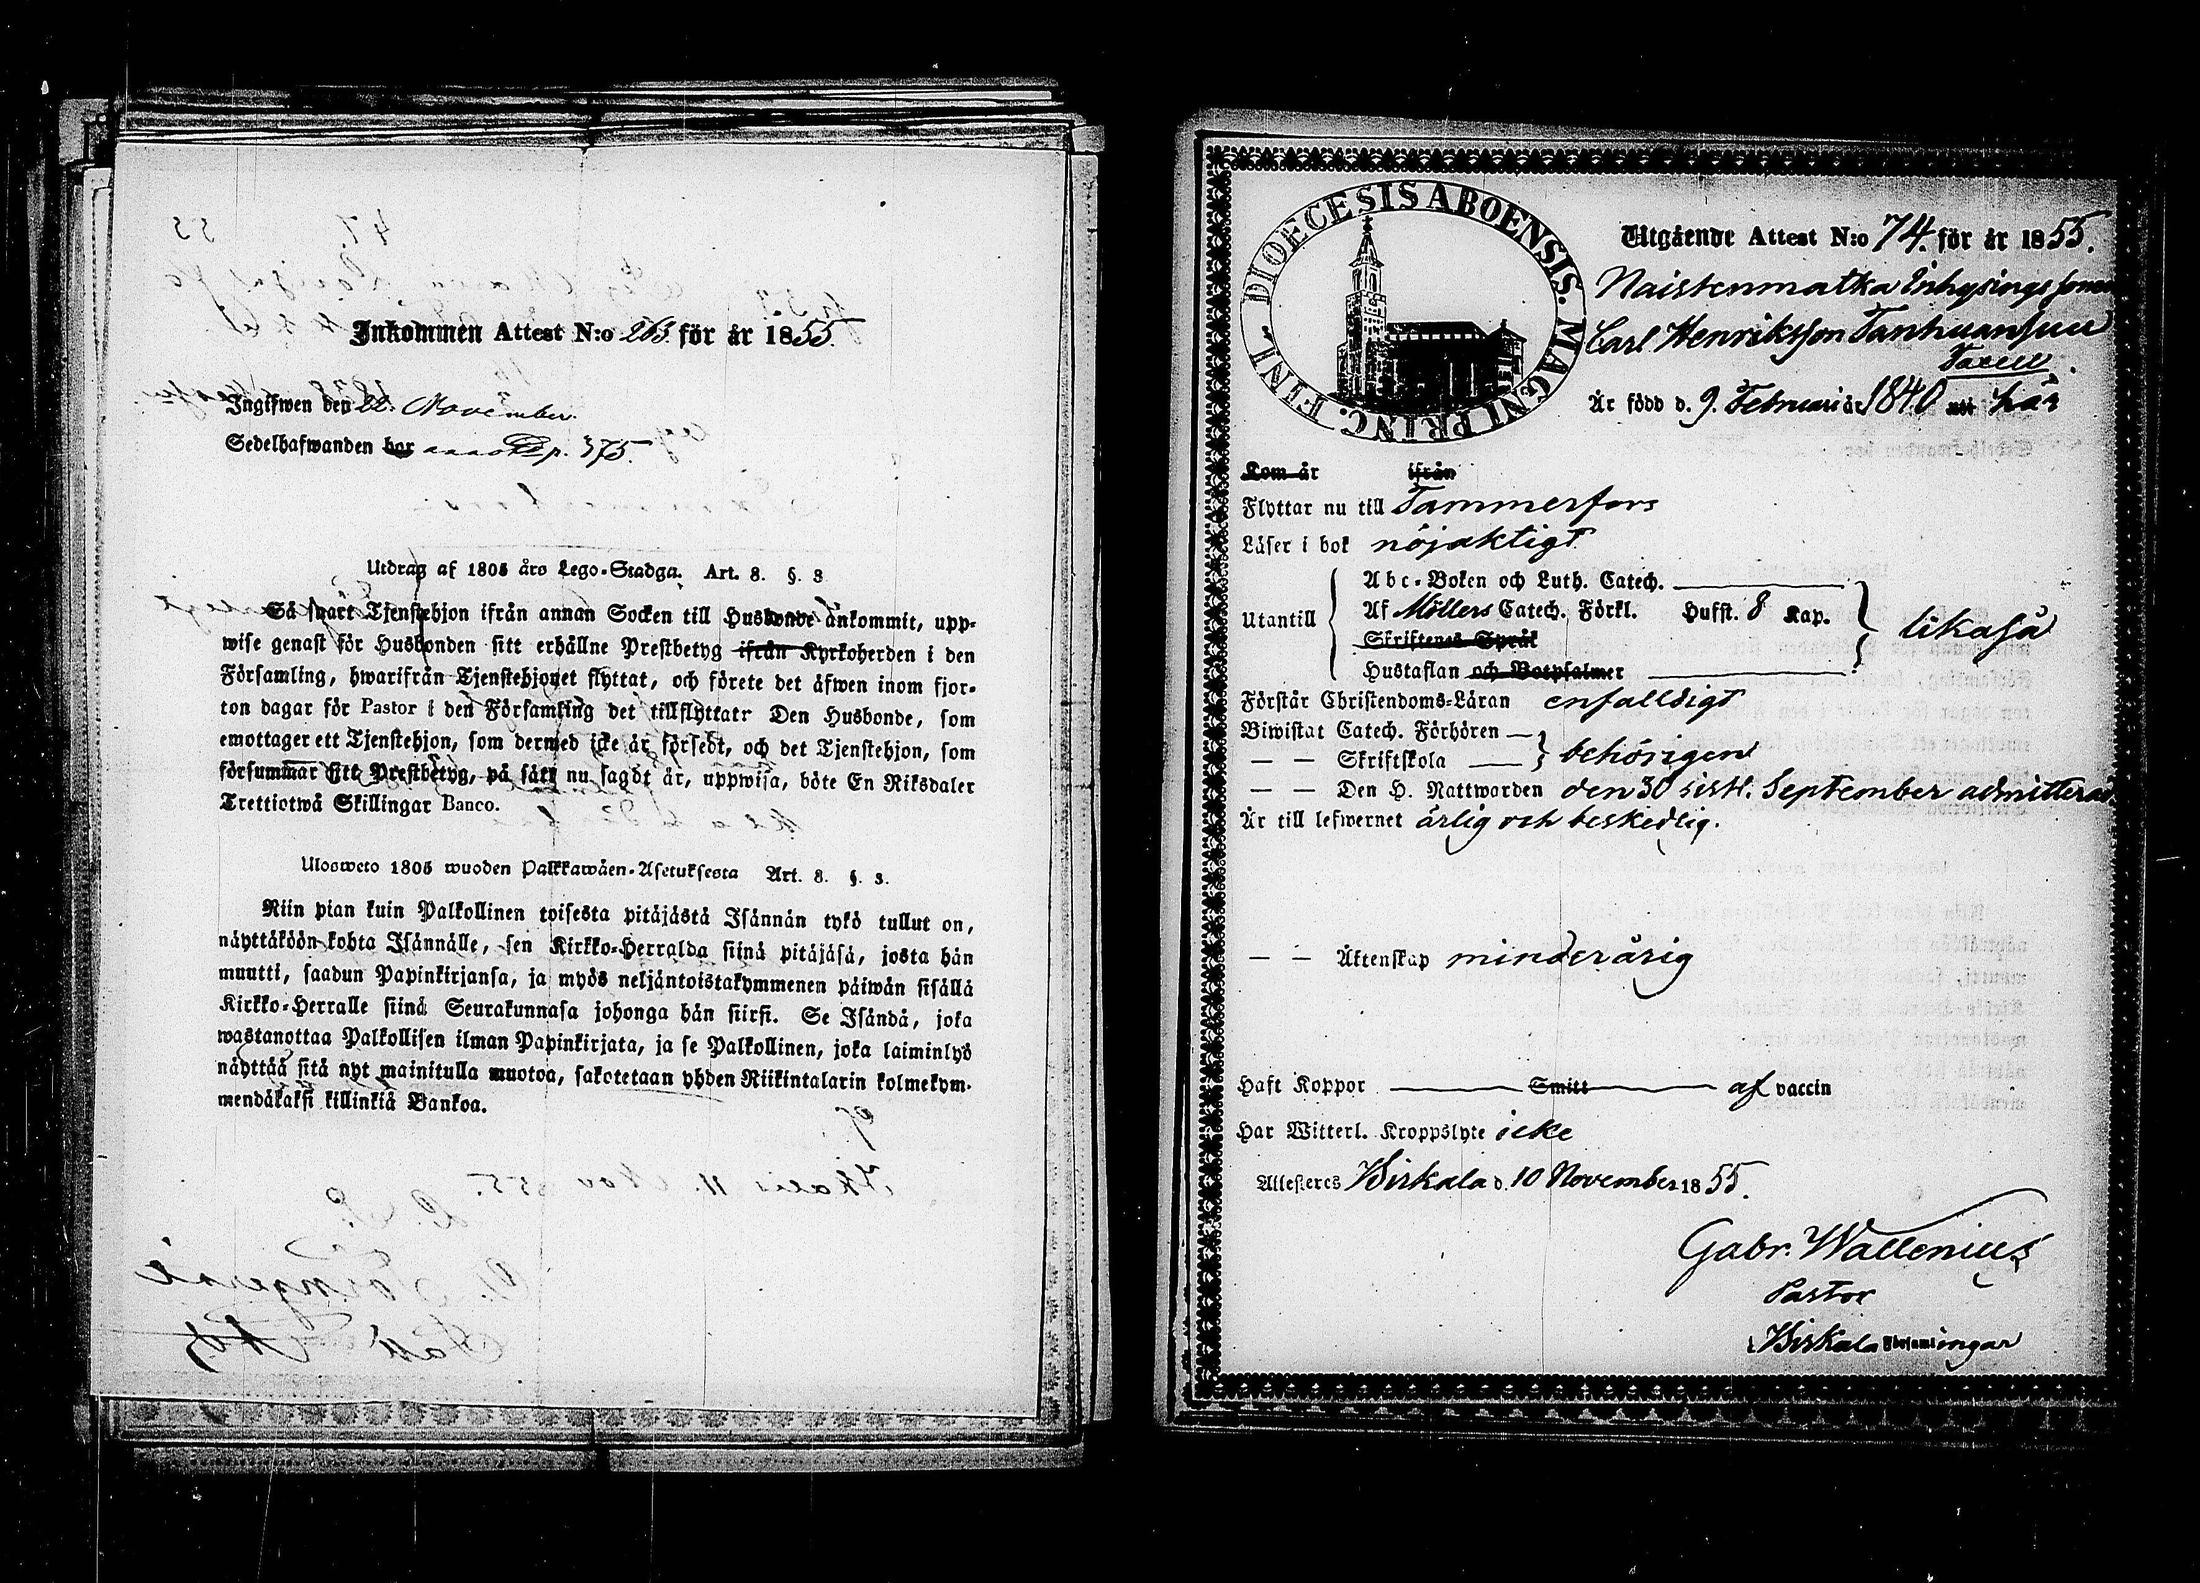 Inkommen Attest N:o 263. för år 1855.
Ingifwen den 22. November.
Sedelhafwanden bor p. 375.
Utdrag af 1805 års Lego-Stadga. Art. 8. §. 3
Så snart Tjenstehjon ifrån annan Socken till Husbonde ankommit, upp-
wise genast för Husbonden sitt erhållne Prestbetyg ifrån Kyrkoherden i den
Församling, hwarifrån Tjenstehjonet flyttat, och förete det äfwen inom fjor-
ton dagar för Pastor i den Församling det tillflyttatr Den Husbonde, som
emottager ett Tjenstehjon, som dermed icke är försedt, och det Tjenstehjon, som
försummar sitt Prestbetyg, på sätt nu sagdt är, uppwisa, böte En Riksdaler
Trettiotwå Skillingar Banco.
Ulosweto 1805 wuoden Palkkawäen-Asetuksesta Art. 8. §. 3.
Niin pian kuin Palkollinen toisesta pitäjästä Isännän tykö tullut on,
näyttäköön kohta Isännälle, sen Kirkko-Herralda siinä pitäjäsä, josta hän
muutti, saadun Papinkirjansa, ja myös neljäntoistakymmenen päiwän sisällä
Kirkko-Herralle siinä Seurakunnasa johonga hän siirsi. Se Isändä, joka
wastanottaa Palkollisen ilman Papinkirjata, ja se Palkollinen, joka laiminlyö
näyttää sitä nyt mainitulla muotoa, sakotetaan yhden Riikintalarin kolmekym-
mendäkaksi killinkiä Bankoa.
DIOECESIS ABOENSIS. MAGNI PRINC. FINL
Utgående Attest N:o 74. för år 1855.
Naistenmatka Inhysings sonen
Carl Henriksson Tanhuansuu
Är född d. 9. Februari år 1840 uti här
Kom år ifrån
Flyttar nu till Tammerfors
Läser i bok nöjaktigt
Utantill
Abc-Boken och Luth. Catech.
Af Möllers Catech. Förkl. Hufst. 8 Kap.
likaså
Skriftenes Språk
Hustaflan och Botpsalmer
Förstår Christendoms-Läran enfalldigt
Biwistat Catech. Förhören
— — Skriftskola behörigen
— — Den H. Nattwarden den 30 sistl. September admitterad
Är till lefwernet ärlig och beskedlig.
— — Äktenskap minderårig
Haft Koppor Smitt af vaccin
Har Witterl. Kroppslyte icke
Attesteres Birkala d. 10 November 1855.
Gabr. Wallenius
Pastor
Birkala Församlingar